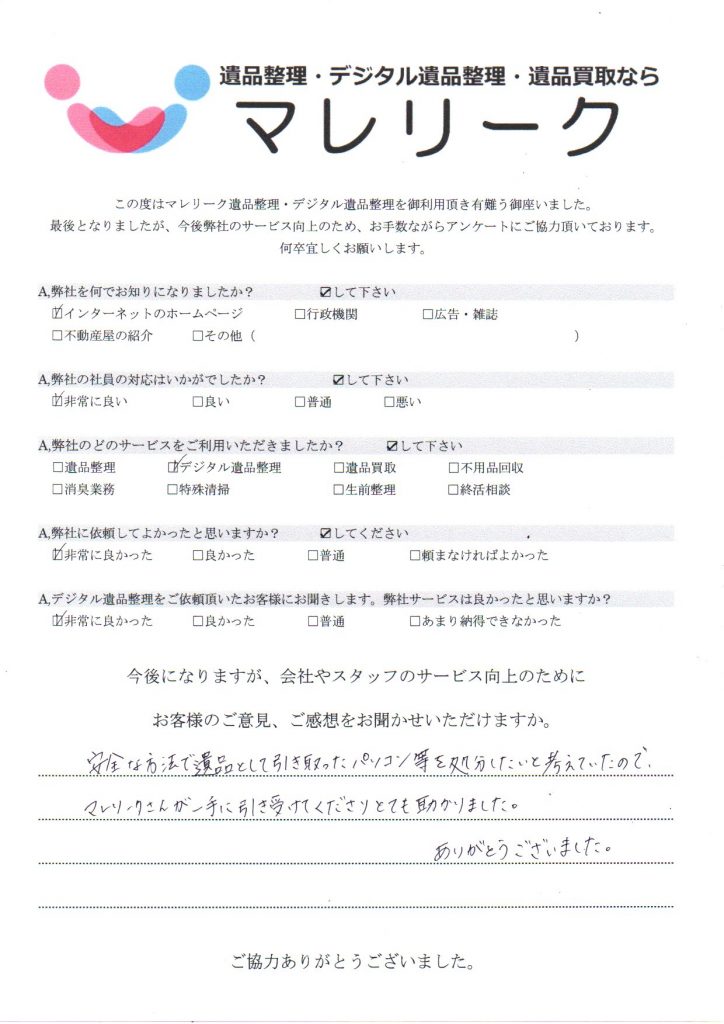 遺品整理・デジタル遺品整理・遺品買取なら
マレリーク
この度はマレリーク遺品整理・デジタル遺品整理を御利用頂き有難う御座いました。
最後となりましたが、今後弊社のサービス向上のため、お手数ながらアンケートにご協力頂いております。
何卒宜しくお願いします。
A,弊社を何でお知りになりましたか？ ☑して下さい
☑インターネットのホームページ □行政機関 □広告・雑誌
□不動産屋の紹介 □その他（ ）
A,弊社の社員の対応はいかがでしたか？ ☑して下さい
☑非常に良い □良い □普通 □悪い
A,弊社のどのサービスをご利用いただきましたか？ ☑して下さい
□遺品整理 ☑デジタル遺品整理 □遺品買取 □不用品回収
□消臭業務 □特殊清掃 □生前整理 □終活相談
A,弊社に依頼してよかったと思いますか？ ☑してください
☑非常に良かった □良かった □普通 □頼まなければよかった
A,デジタル遺品整理をご依頼頂いたお客様にお聞きします。弊社サービスは良かったと思いますか？
☑非常に良かった □良かった □普通 □あまり納得できなかった
今後になりますが、会社やスタッフのサービス向上のために
お客様のご意見、ご感想をお聞かせいただけますか。
安全な方法で遺品として引き取ったパソコン等を処分したいと考えていたので、
マレリークさんが一手に引き受けてくださりとても助かりました。
ありがとうございました。
ご協力ありがとうございました。